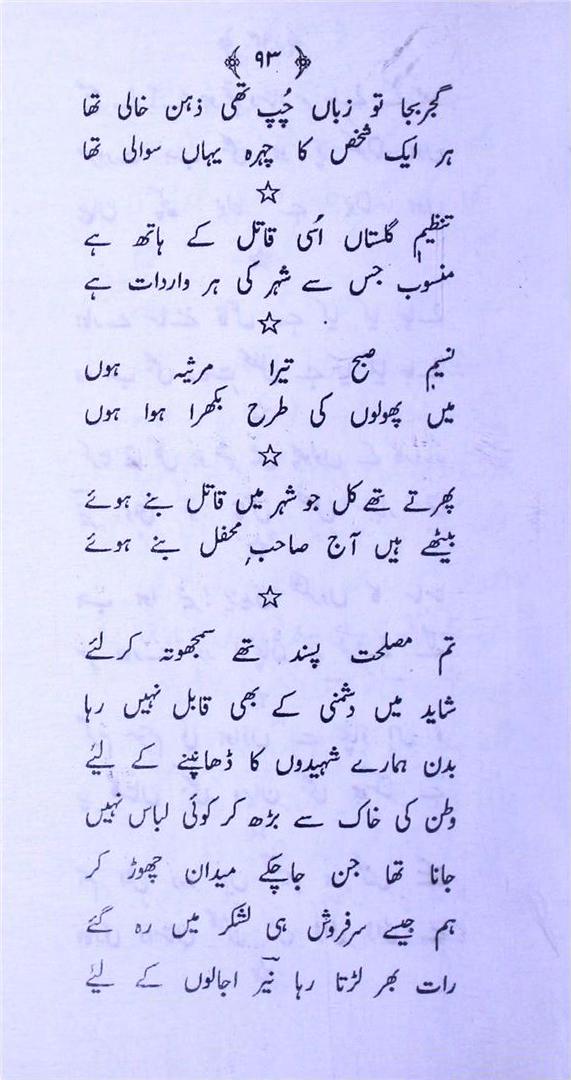 ۹۳
گجر بجا تو زباں چُپ تھی ذہن خالی تھا
ہر ایک شخص کا چہرہ یہاں سوالی تھا
☆
تنظیمِ گلستاں اُسی قاتل کے ہاتھ ہے
منسوب جس سے شہر کی ہر واردات ہے
☆
نسیم صبح تیرا مرثیہ ہوں
میں پھولوں کی طرح بکھرا ہوا ہوں
☆
پھرتے تھے کل جو شہر میں قاتل بنے ہوئے
بیٹھے ہیں آج صاحبِ محفل بنے ہوئے
☆
تم مصلحت پسند تھے سمجھوتہ کرلئے
شاید میں دشمنی کے بھی قابل نہیں رہا
بدن ہمارے شہیدوں کا ڈھاپنے کے لیٔے
وطن کی خاک سے بڑھ کر کوئی لباس نہیں
جانا تھا جن جاچکے میدان چھوڑ کر
ہم جیسے سرفروش ہی لشکر میں رہ گئے
رات بھر لڑتا رہا نیّر اجالوں کے لیٔے